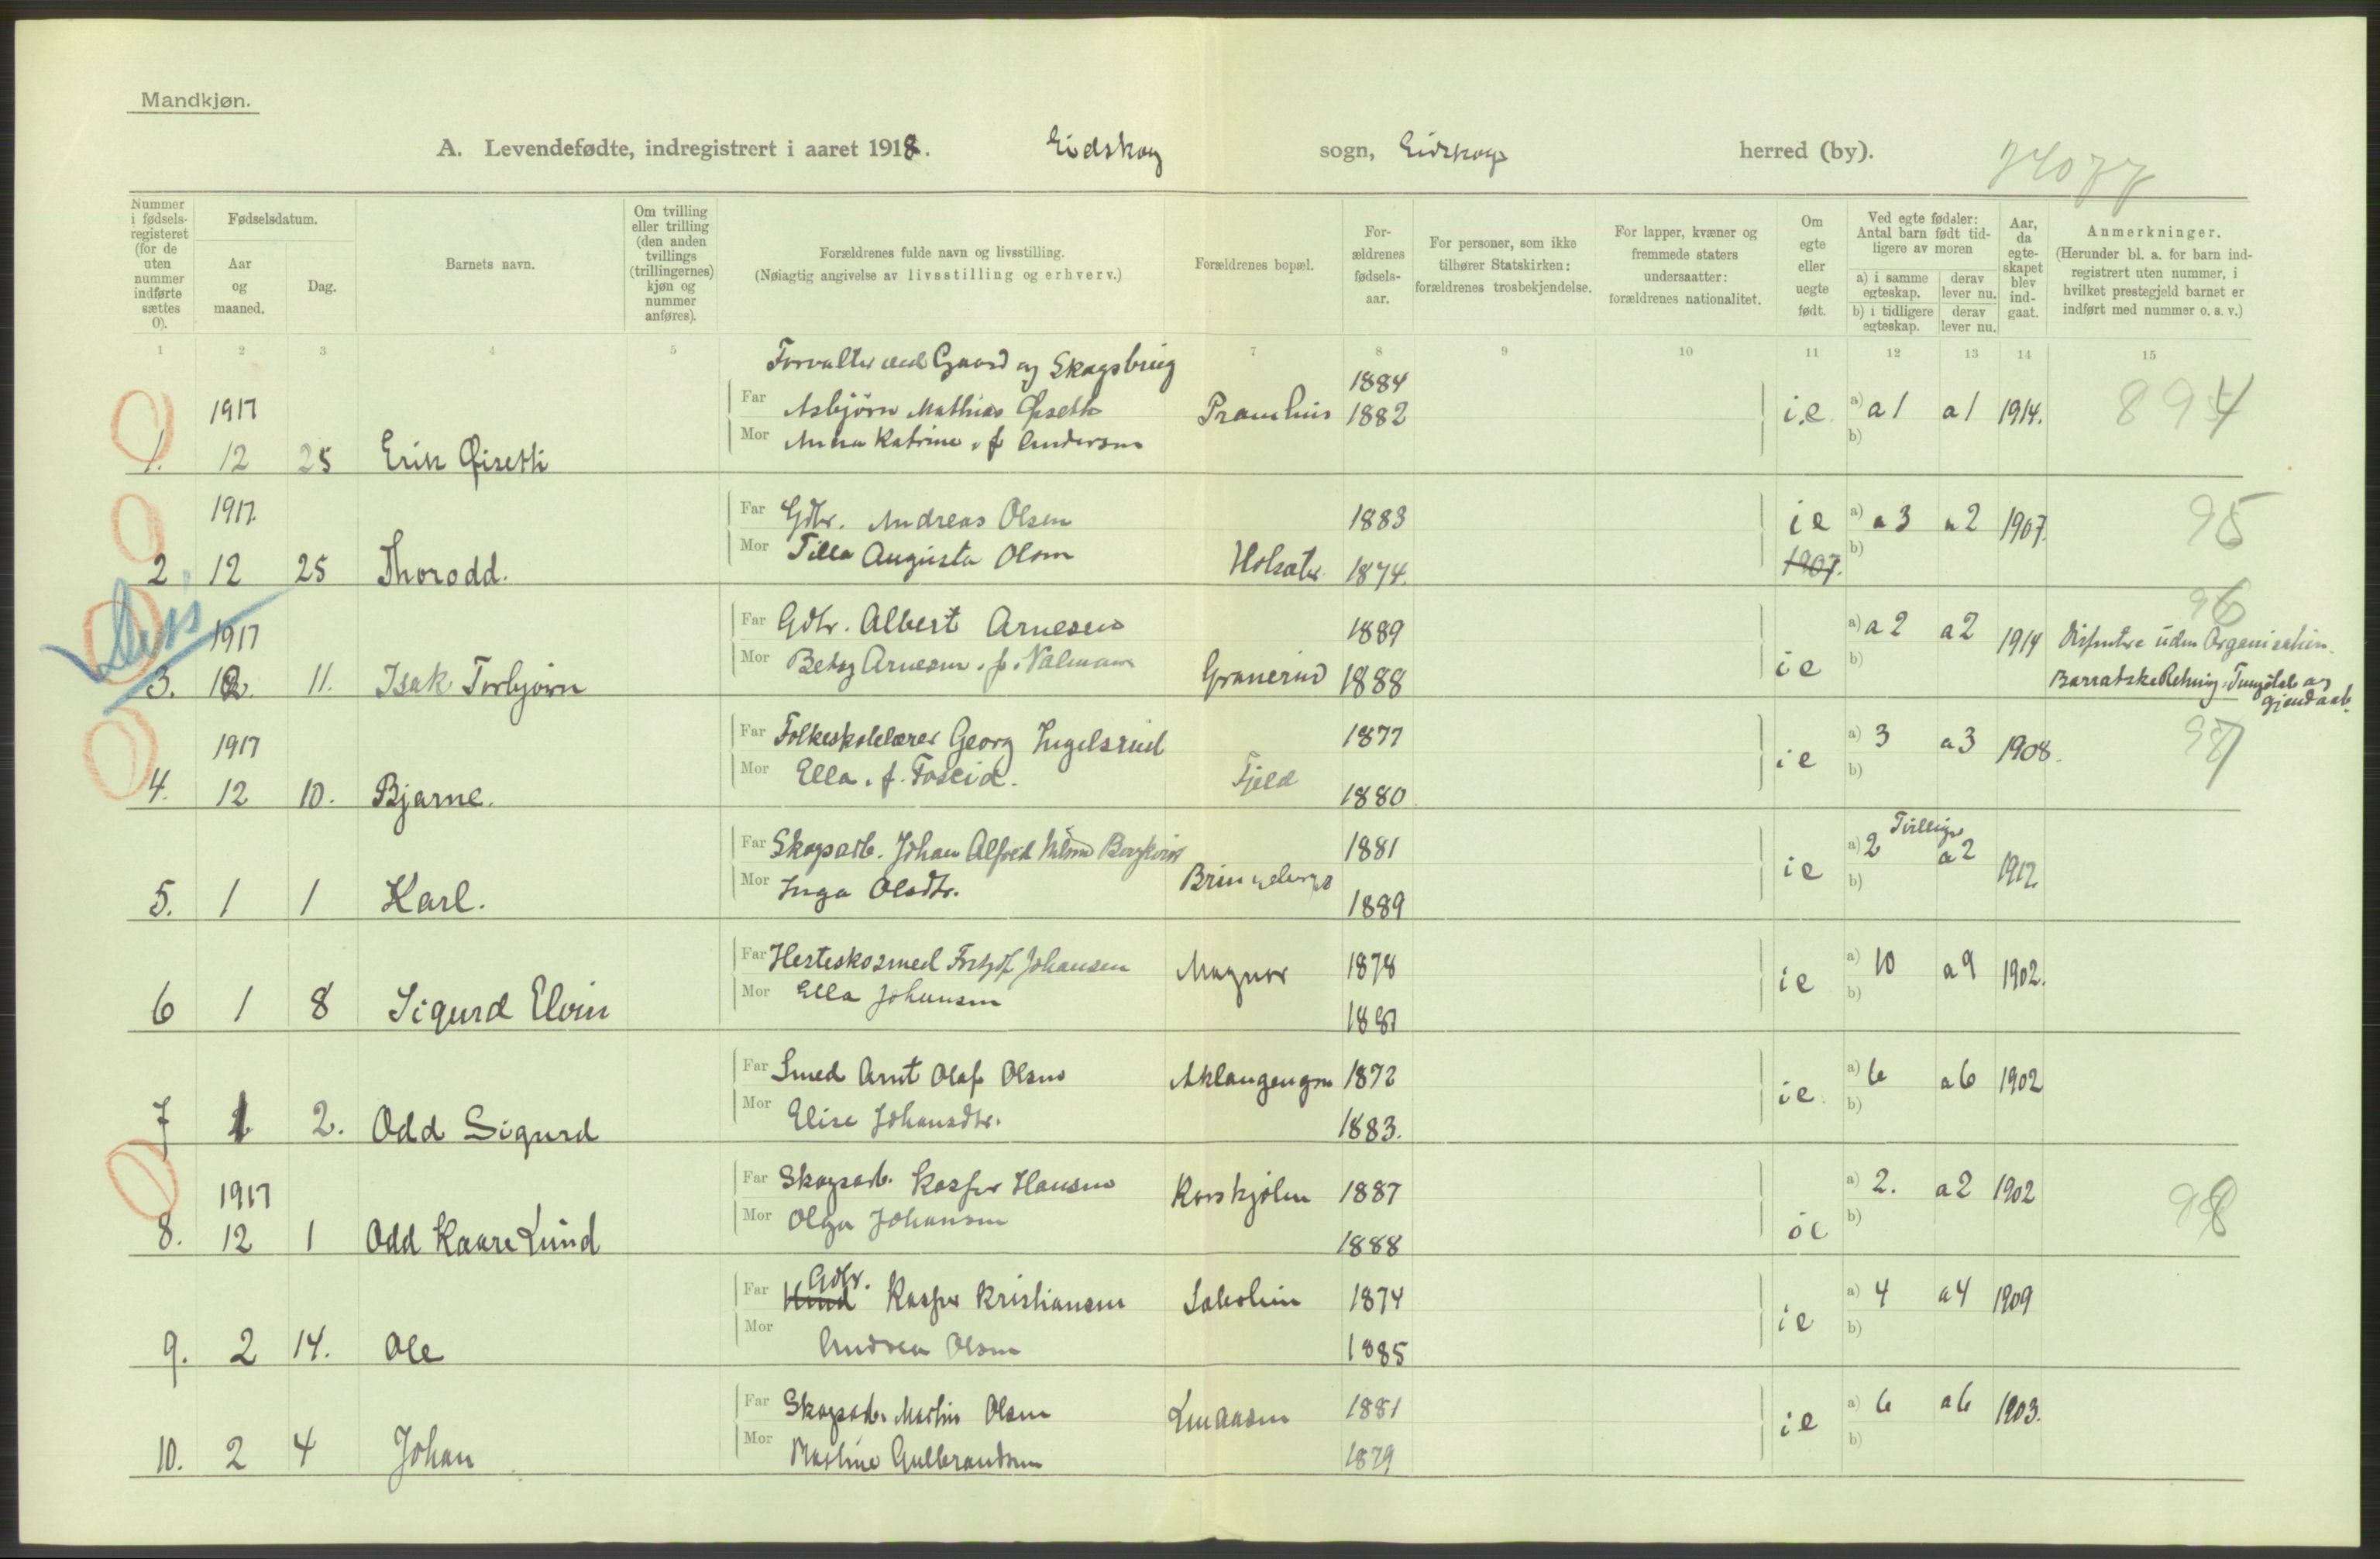 Mandkjøn.
A. Levendefødte, indregistrert i aaret 1918. Eidskog sogn, Eidskog herred (by).
Nummer i fødsels-registeret (for de uten nummer indførte sættes 0).
Fødselsdatum.
Aar og maaned.
Dag.
Barnets navn.
Om tvilling eller trilling (den anden tvillings (trillingernes) kjøn og nummer anføres).
Forældrenes fulde navn og livsstilling.
(Nøiagtig angivelse av livsstilling og erhverv.)
Forældrenes bopæl.
For-ældrenes fødsels-aar.
For personer, som ikke tilhører Statskirken: forældrenes trosbekjendelse.
For lapper, kvæner og fremmede staters undersaatter: forældrenes nationalitet.
Om egte eller uegte født.
Ved egte fødsler: Antal barn født tid-ligere av moren
a) i samme egteskap.
derav lever nu.
b) i tidligere egteskap.
derav lever nu.
Aar, da egte-skapet blev ind-gaat.
Anmerkninger.
(Herunder bl. a. for barn ind-registrert uten nummer, i hvilket prestegjeld barnet er indført med nummer o. s. v.)
1 2 3 4 5 7 8 9 10 11 12 13 14 15
Forvalter ved Gaard og Skogsbrug
1917 Far Asbjörn Mathias Øiseth 1884
1. 12 25 Erik Øiseth Mor Anna Katrine, f Andersen Pramhus 1882 i.e. a) a 1 a 1 1914. 894
b)
1917. Far Gdbr. Andreas Olsen 1883 i e a) a 3 a 2 1907. 95
2. 12 25 Thorodd. Mor Tilla Augusta Olsen 1874. 1907. b)
1917 Far Gdbr. Albert Arnesen 1889 a) a 2 a 2 1914 96
3. 12. 11. Isak Torbjørn Mor Betsy Arnesen, f. Granerud 1888 i e b)
Dissentere uden Organisation.
1917 Far Folkeskolelærer Georg Ingelsrud 1877 a) 3 a 3 1908. 97
4. 12 10. Bjarne. Mor Ella, f. Foseid. Fjeld 1880 i e b)
Far Skogsarb. Johan Alfred 1881 a) 2 Tvillinger a 2 1912.
5. 1 1 Karl. Mor Inga Olsdtr. 1889 i e b)
Far Hesteskosmed Johansen Magnor 1878 a) 10 a 9 1902.
6 1 8 Sigurd Elvin Mor Ella Johansen 1881 i e b)
Far Smed Arnt Olaf Olsen 1872 a) 6 a 6 1902
7 1 2. Odd Sigurd Mor Elise Johansdtr. 1883. i e b)
1917 Far Skogsarb. Kasper Hansen 1887 a) 2. a 2 1902 98
8. 12 1 Odd Kaare Lund Mor Olga Johansen 1888 i e b)
Gdbr.
Far Kasper Kristiansen 1874 a) 4 a 4 1909
9. 2 14. Ole Mor Andrea Olsen 1885 i e b)
Far Skogsarb. Martin Olsen 1881 a) 6 a 6 1903.
10. 2 4 Johan Mor Martine Gulbrandsen 1879 i e b)